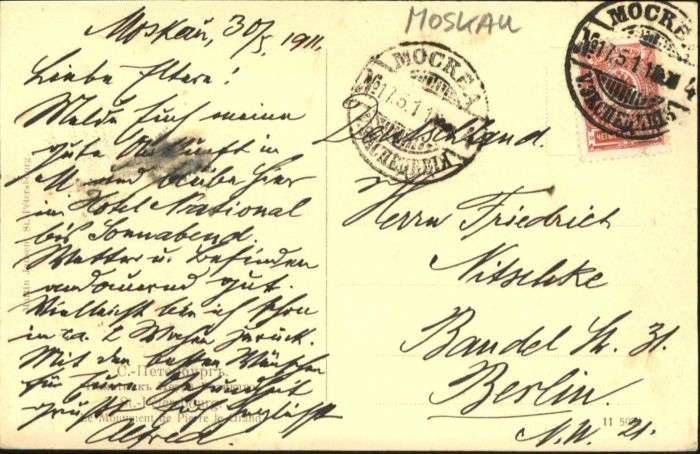 MOSKAU
Moskau, 30/5. 1911.
Liebe Eltern!
Melde Euch meine
gute Ankunft in
M. und bleibe hier
im Hotel National
bis Sonnabend.
Wetter u. Befinden
andauernd gut.
Vielleicht bin ich schon
in ca. 2 Wochen zurück.
Mit den besten Wünschen
für Eure Gesundheit
grüßt Euch herzlichst
Alfred.
МОСКВА
17.5.11
МОСКВА
17.5.11
Deutschland.
Herrn Friedrich
Nitschke
Bandel St. 31.
Berlin.
N.W. 21.
С.-Петербургъ.
St.-Pétersbourg.
Le Monument de Pierre le Grand